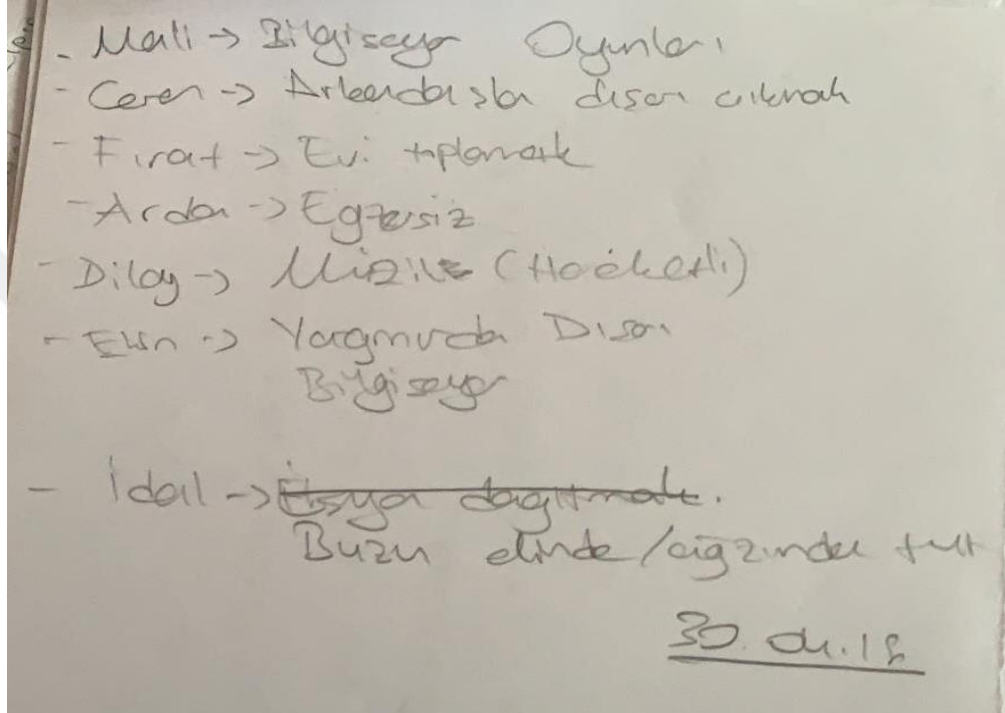 - Mali → Bilgisayar Oyunları
- Ceren → Arkadaşla dışarı çıkmak
- Fırat → Evi toplamak
- Arda → Egzersiz
- Dilay → Müzik (Hareketli)
- Elin → Yağmurda Dışarı
Bilgisayar
- İdal → Eşya dağıtmak.
Buzu elinde / ağzında tut
30.04.18